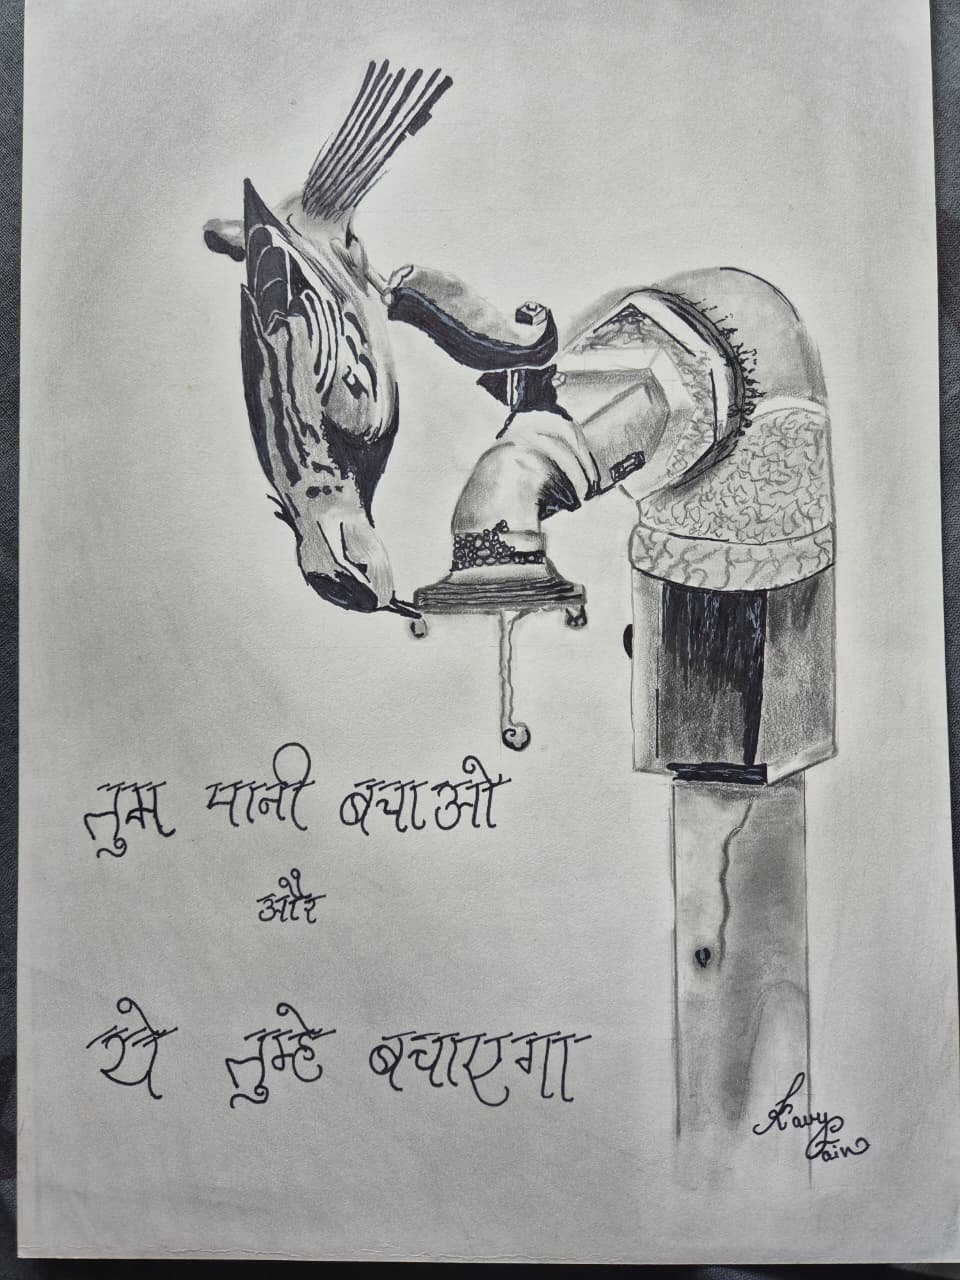 तुम पानी बचाओ
और
ये तुम्हे बचाएगा
Kavy
Jain